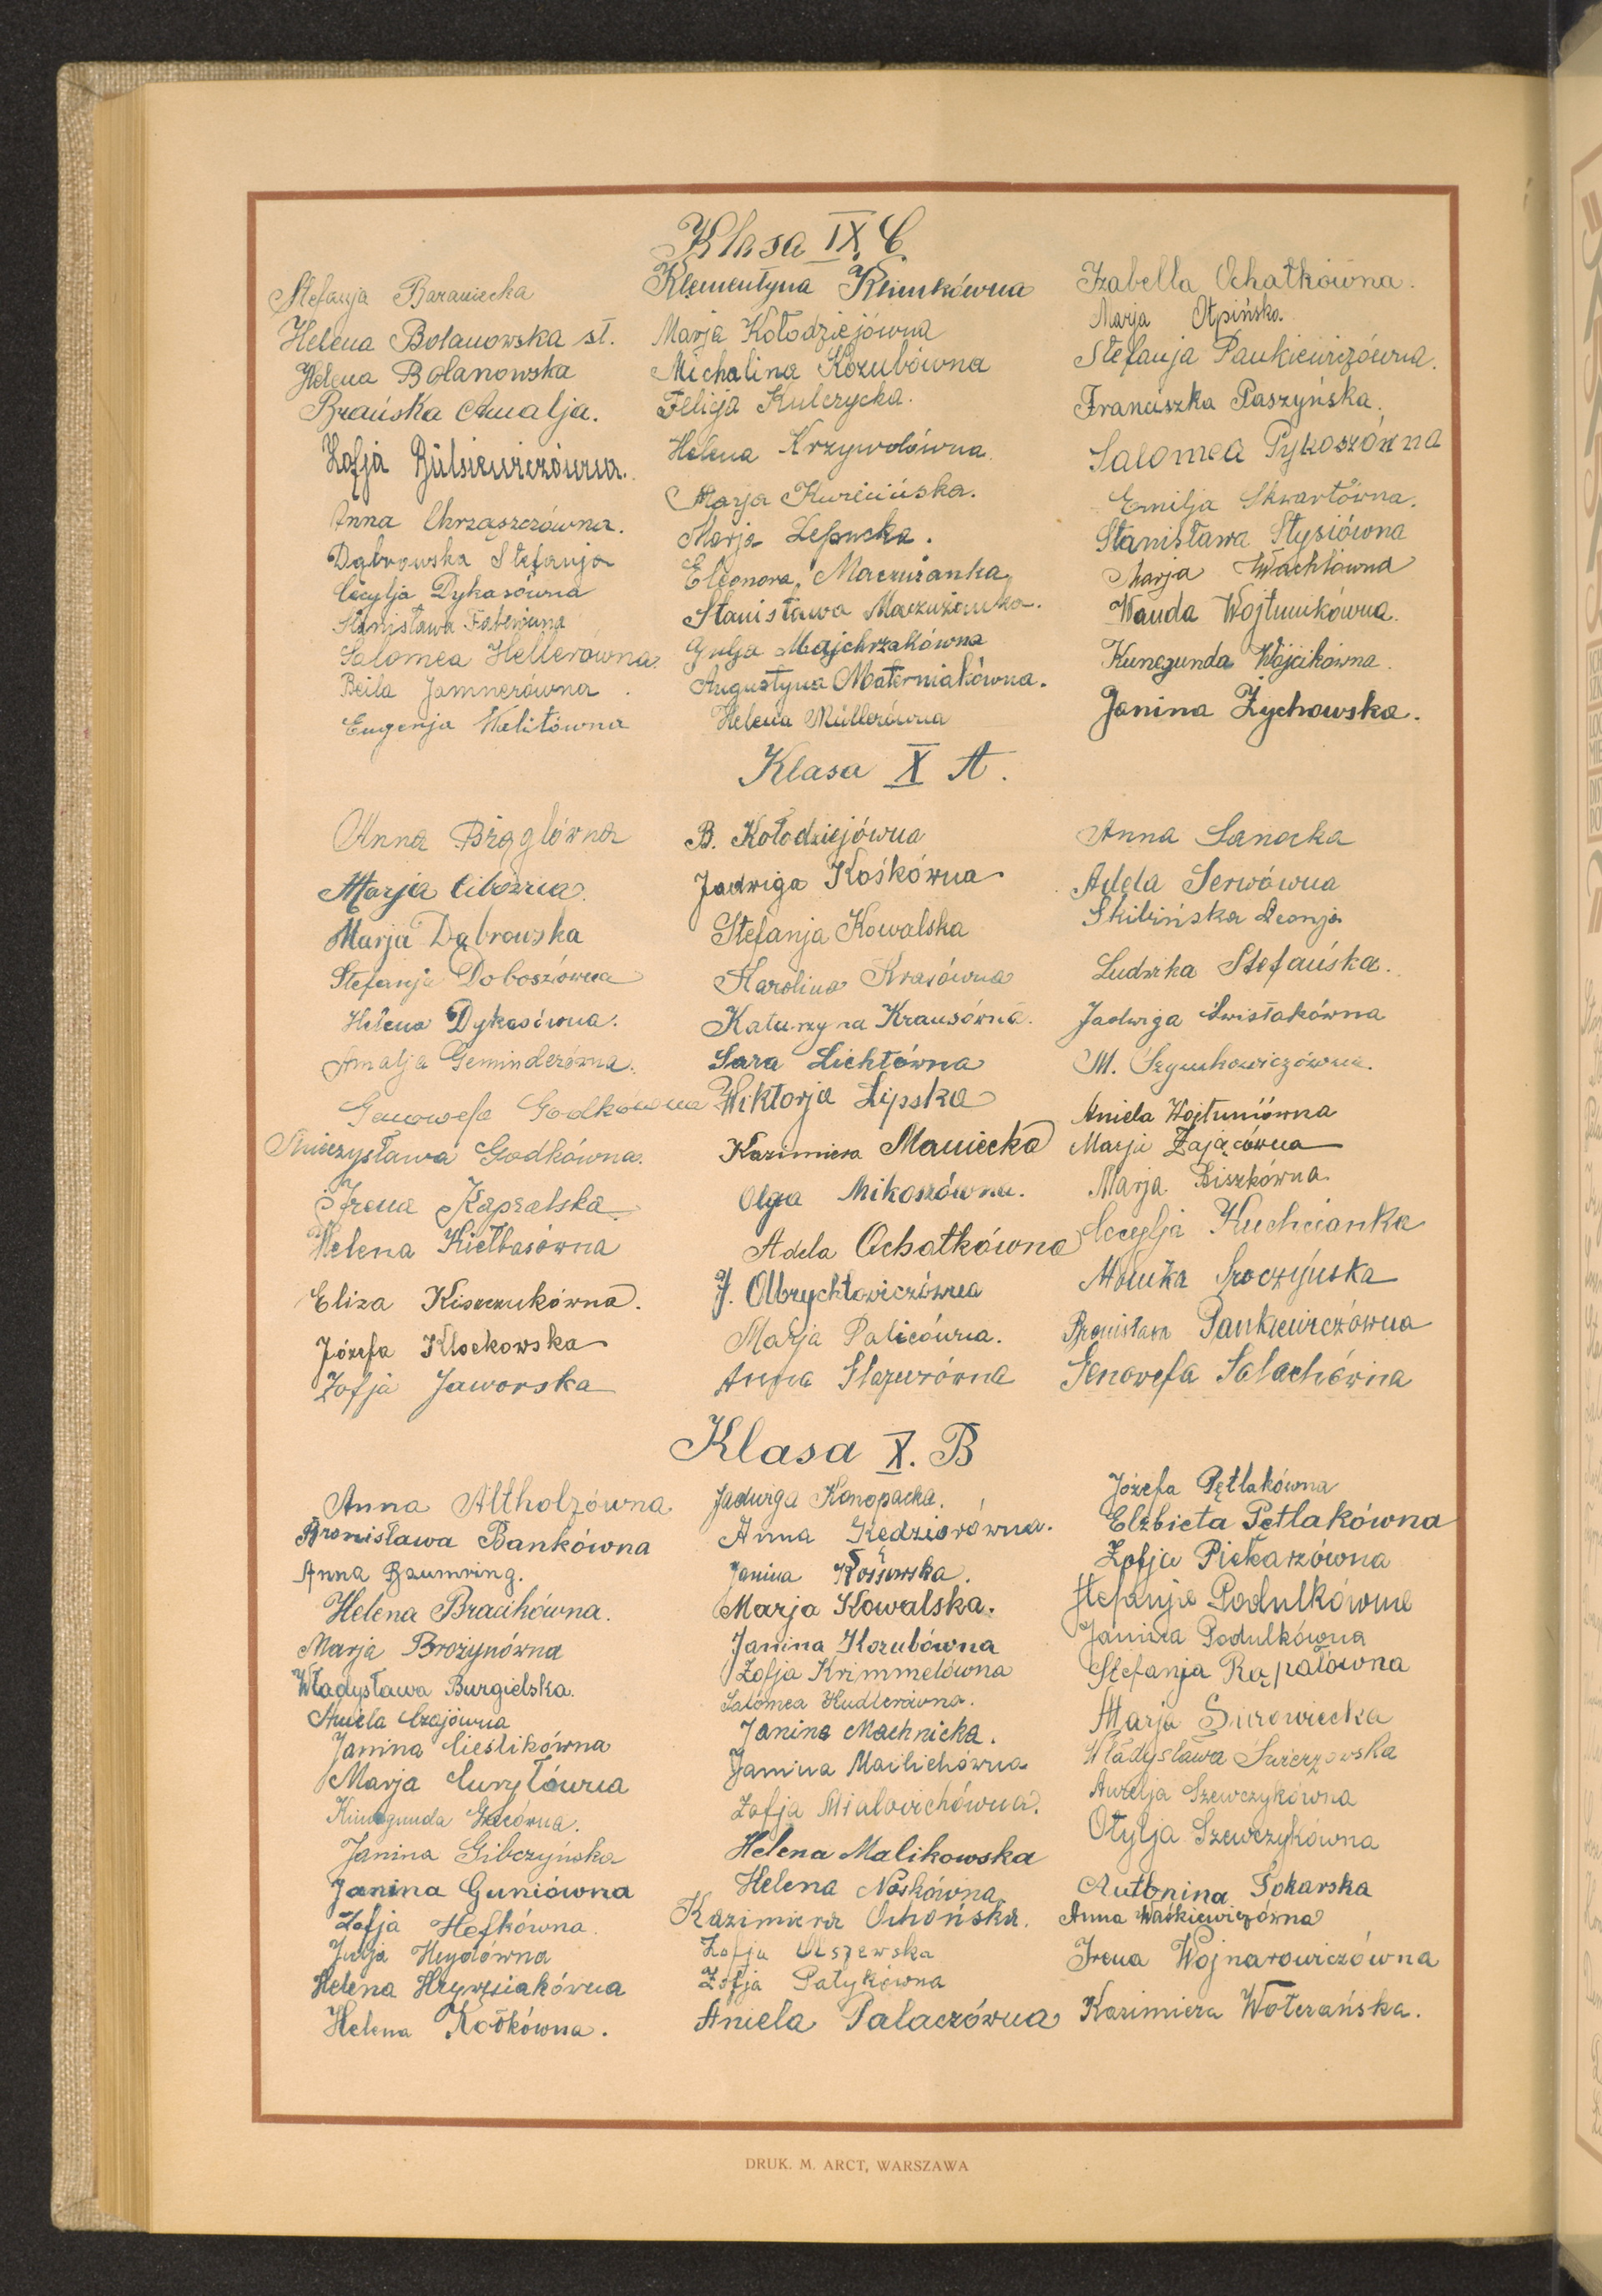 Klasa IX C
Stefanja Baraniecka
Helena Bolanowska st.
Helena Bolanowska
Brańska Amalja.
Zofja
Anna Chrząszczówna.
Dąbrowska Stefanja
Cecylja Dykasówna
Stanisława
Salomea Hellerówna
Beila Jamnerówna
Eugenja
Klementyna Klimkówna
Marja Kołodziejówna
Michalina Kozubówna
Felicja Kulczycka.
Helena Krzywolówna.
Marja
Marja
Eleonora Maczużanka
Stanisława Maczużanka.
Julja Majchrzakówna
Augustyna Materniakówna.
Helena Müllerówna
Izabella Ochałkówna.
Marja Otpińska.
Stefanja Pankiewiczówna.
Franciszka Paszyńska.
Salomea Pykoszówna
Emilja Skwartówna.
Stanisława Stysiówna
Marja Wachlówna
Wanda Wojtunikówna.
Kunegunda Wójcikówna.
Janina Żychowska.
Klasa X A.
Anna Brąglówna
Marja
Marja Dąbrowska
Stefanja Doboszówna
Helena Dykasówna.
Amalja Geminderówna.
Genowefa Godkówna
Mieczysława Godkówna.
Irena Kapralska
Helena Kiełbasówna
Eliza Kiszczukówna.
Józefa Klockowska
Zofja Jaworska
B. Kołodziejówna
Jadwiga Kośkówna
Stefanja Kowalska
Karolina Krasówna
Katarzyna Krausówna.
Sara Lichtówna
Wiktorja Lipska
Kazimiera Maniecka
Olga Mikoszówna.
Adela Ochotkówna
J. Olbrychtowiczówna
Marja Palicówna.
Anna Stazurówna
Anna Sanocka
Adela Serwówna
Skibińska Leonja
Ludwika Stefańska.
Jadwiga Świstakówna
M. Szymkowiczówna.
Aniela Wojtuniówna
Marja Zającówna
Marja Biszkówna.
Cecylja Kuchcianka
Monika Sroczyńska
Bronisława Pankiewiczówna
Genowefa Salachówna
Klasa X. B
Anna Altholzówna
Bronisława Bankówna
Anna Baumring.
Helena Bracikówna.
Marja Brożynówna
Władysława Burgielska.
Aniela Czajówna
Janina Cieślikówna
Marja Curyłówna
Kunegunda
Janina Gibczyńska
Janina Guniówna
Zofja Hefkówna.
Julja Heydówna
Helena Hrywniakówna
Helena Kośkówna.
Jadwiga Konopacka.
Anna Kędziorówna.
Janina Kossowska.
Marja Kowalska.
Janina Kozubówna
Zofja Krimmelówna
Salomea Kudlerówna.
Janina Machnicka.
Janina
Zofja
Helena Malikowska
Helena Noskówna
Kazimiera Ochońska.
Zofja Olszewska
Zofja Patykówna
Aniela Palaczówna
Józefa Pętlakówna
Elżbieta Petlakówna
Zofja Piekarzówna
Stefanja Podulkówna
Janina Podulkówna
Stefanja Rąpałówna
Marja Surowiecka
Władysława Świerzowska
Aurelja Szewczykówna
Otylja Szewczykówna
Antonina Tokarska
Anna Waśkiewiczówna
Irena Wojnarowiczówna
Kazimiera Woterańska.
DRUK. M. ARCT, WARSZAWA